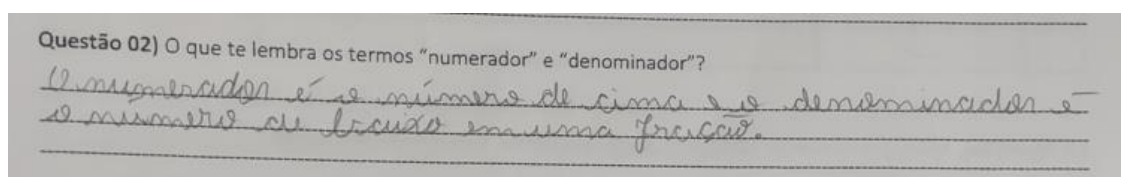 Questão 02) O que te lembra os termos “numerador” e “denominador”?
O numerador é o número de cima e o denominador é
o número de baixo em uma fração.